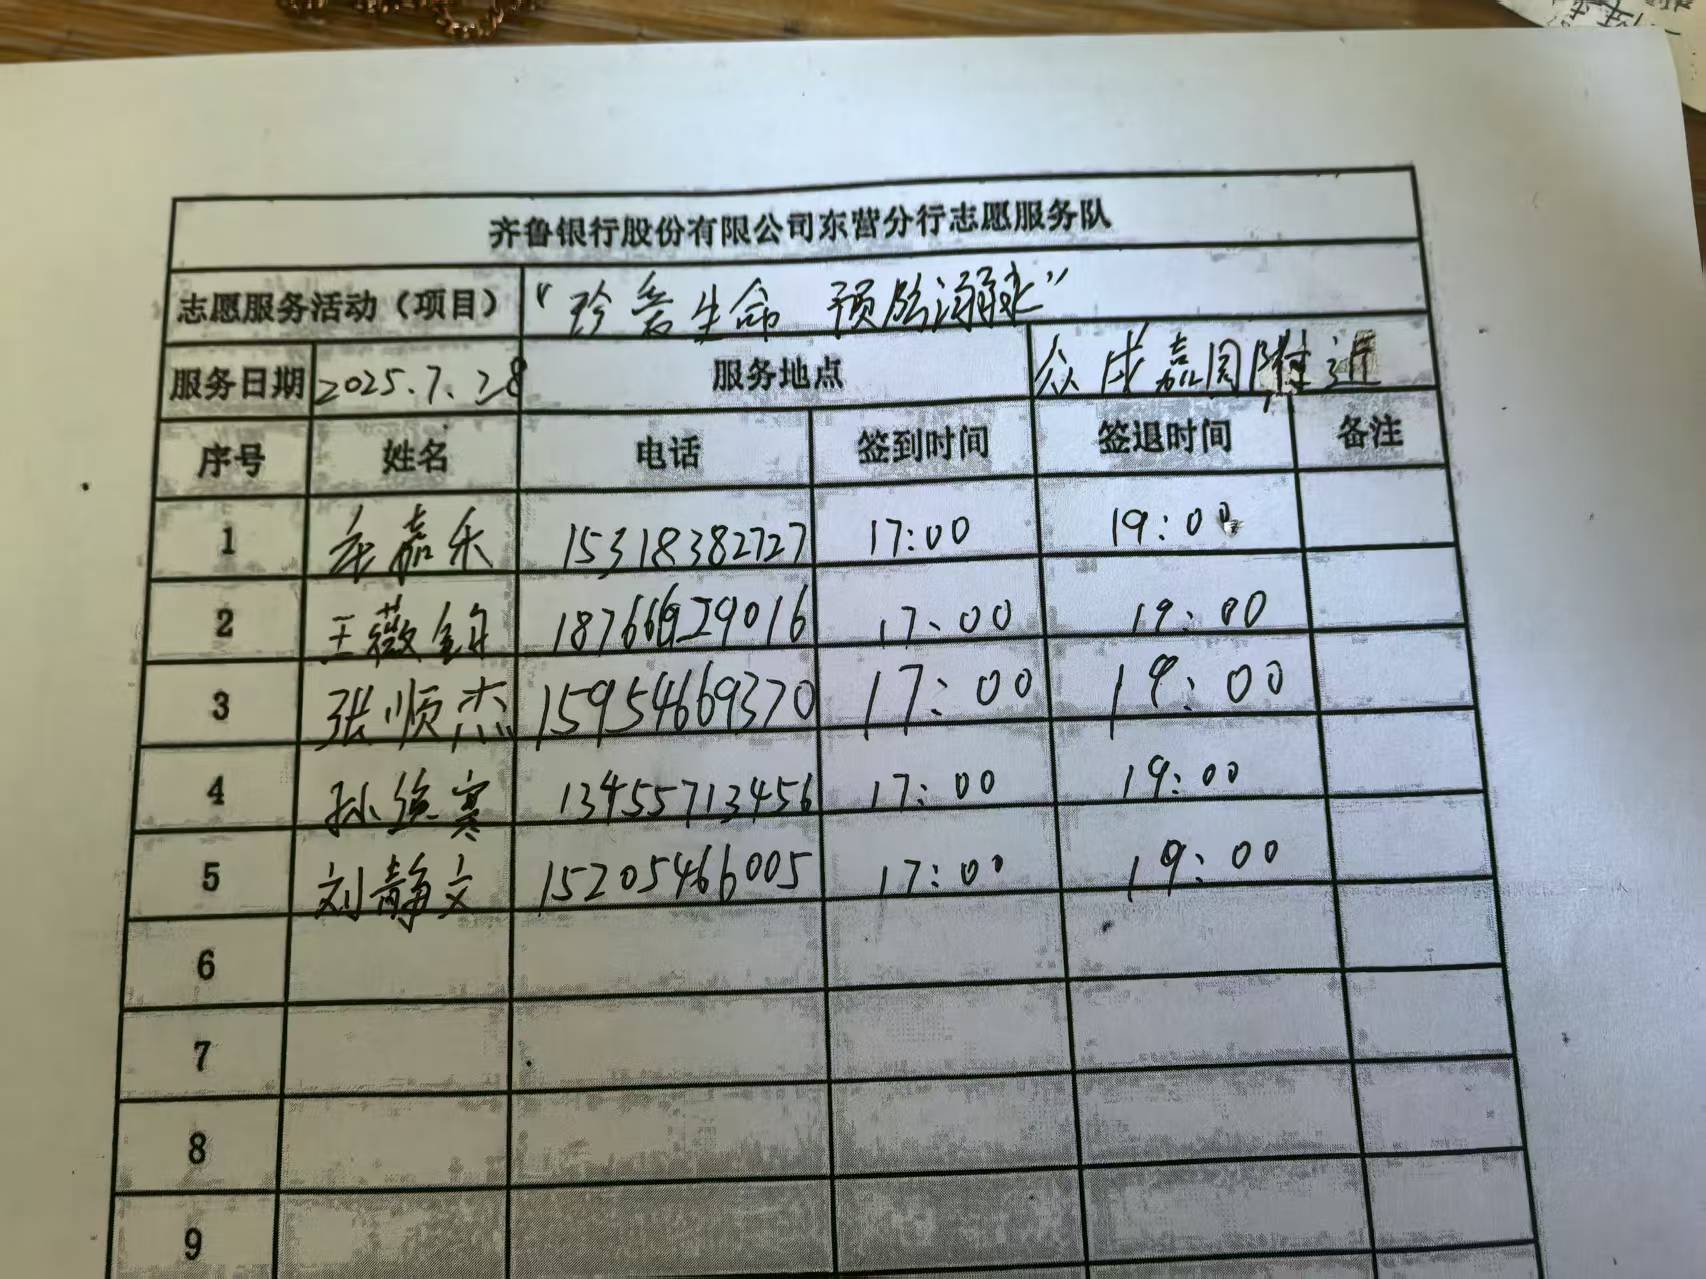 齐鲁银行股份有限公司东营分行志愿服务队
志愿服务活动（项目） “珍爱生命 预防溺水”
服务日期 2025.7.28 服务地点 众成嘉园附近
序号 姓名 电话 签到时间 签退时间 备注
1 嘉禾 15318382727 17:00 19:00
2 王薇 17:00 19:00
3 张顺杰 15954669370 17:00 19:00
4 孙 13455713456 17:00 19:00
5 刘静文 15205466005 17:00 19:00
6
7
8
9